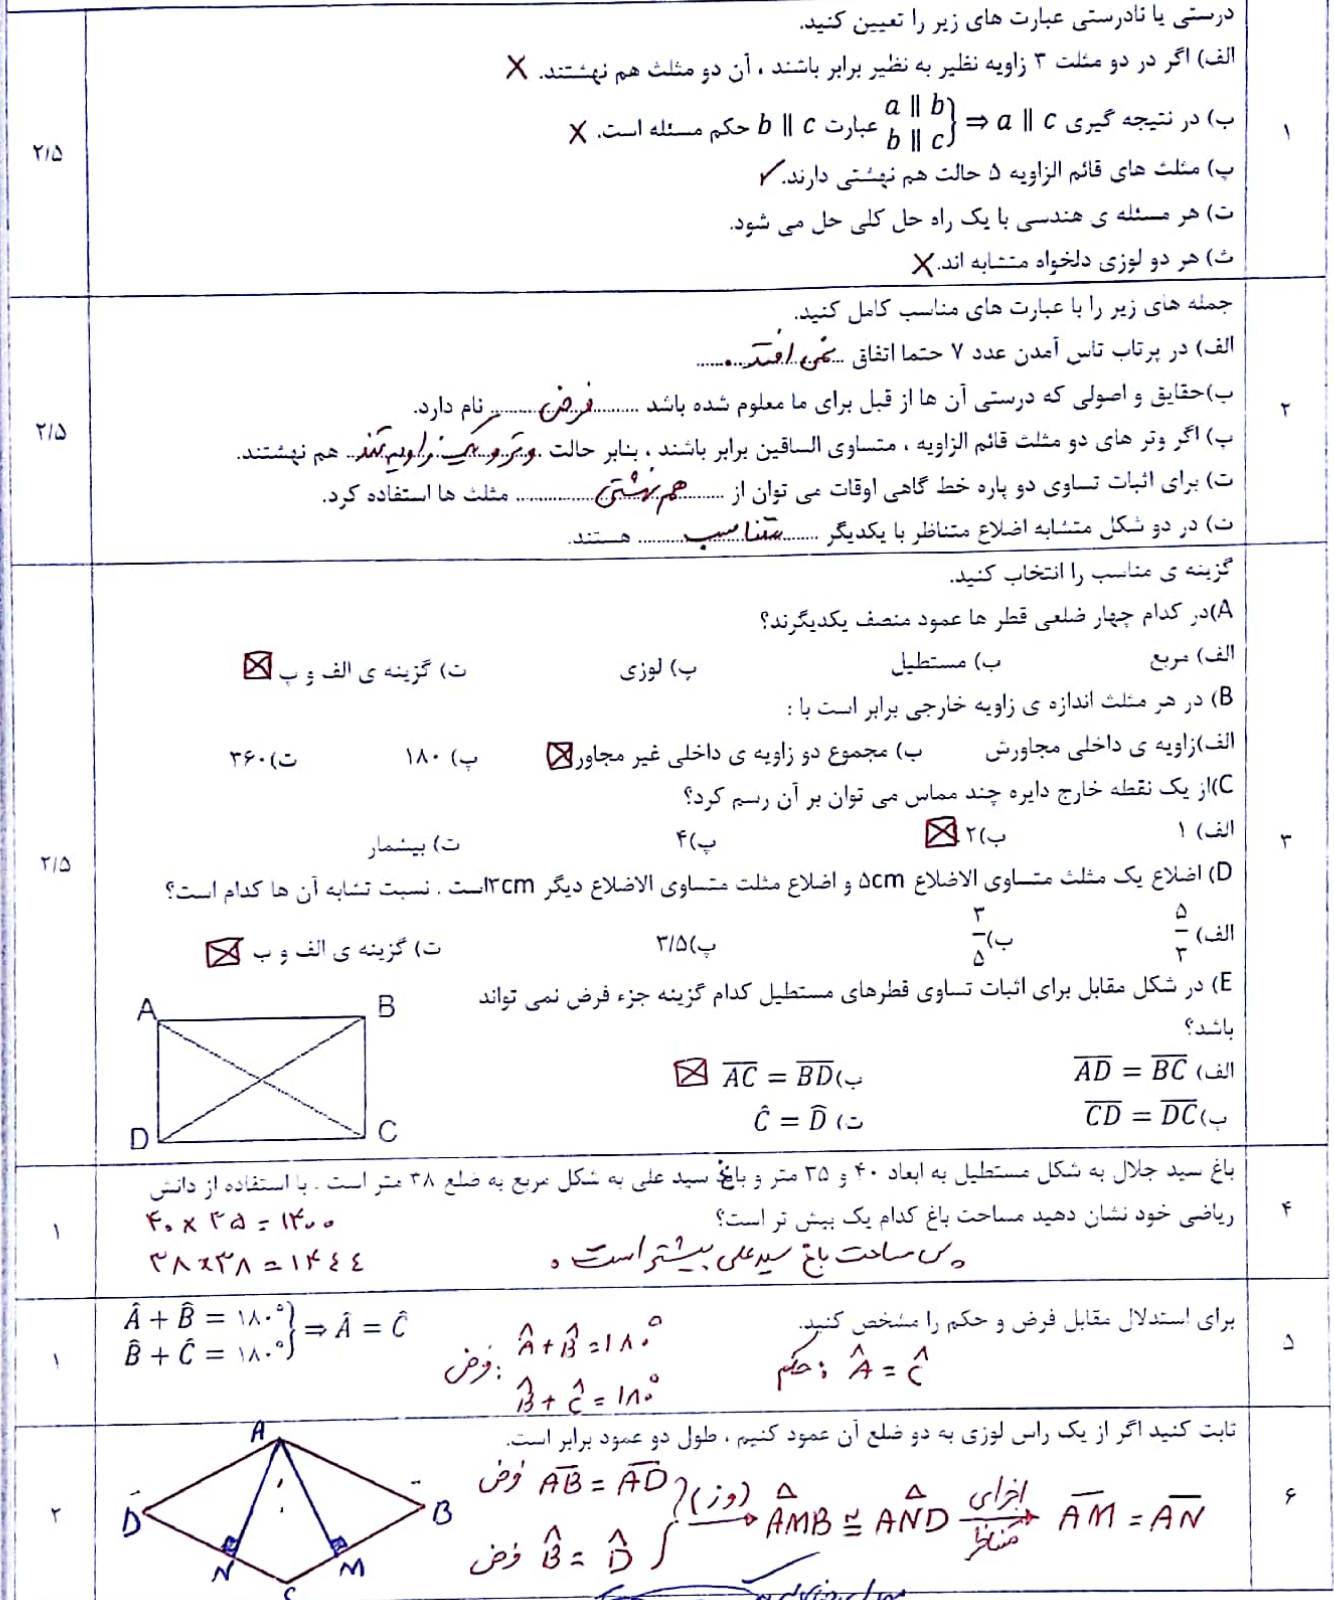 درستی یا نادرستی عبارت های زیر را تعیین کنید.
الف) اگر در دو مثلث ۳ زاویه نظیر به نظیر برابر باشند ، آن دو مثلث هم نهشتند. ✗
۱
ب) در نتیجه گیری a ∥ b , b ∥ c } ⇒ a ∥ c عبارت b ∥ c حکم مسئله است. ✗
۲/۵
پ) مثلث های قائم الزاویه ۵ حالت هم نهشتی دارند. ✓
ت) هر مسئله ی هندسی با یک راه حل کلی حل می شود.
ث) هر دو لوزی دلخواه متشابه اند. ✗
جمله های زیر را با عبارت های مناسب کامل کنید.
الف) در پرتاب تاس آمدن عدد ۷ حتما اتفاق ...نمی افتد...
۲
ب)حقایق و اصولی که درستی آن ها از قبل برای ما معلوم شده باشد .......فرض....... نام دارد.
۲/۵
پ) اگر وتر های دو مثلث قائم الزاویه ، متساوی الساقین برابر باشند ، بنابر حالت .وتر و یک زاویه تند.. هم نهشتند.
ت) برای اثبات تساوی دو پاره خط گاهی اوقات می توان از .......هم نهشتی....... مثلث ها استفاده کرد.
ث) در دو شکل متشابه اضلاع متناظر با یکدیگر .......متناسب....... هستند.
گزینه ی مناسب را انتخاب کنید.
A)در کدام چهار ضلعی قطر ها عمود منصف یکدیگرند؟
الف) مربع ب) مستطیل پ) لوزی ت) گزینه ی الف و پ ☒
B) در هر مثلث اندازه ی زاویه خارجی برابر است با :
الف)زاویه ی داخلی مجاورش ب) مجموع دو زاویه ی داخلی غیر مجاور ☒ پ) ۱۸۰ ت)۳۶۰
C)از یک نقطه خارج دایره چند مماس می توان بر آن رسم کرد؟
الف) ۱ ب)۲ ☒ پ)۴ ت) بیشمار
۳
۲/۵
D) اضلاع یک مثلث متساوی الاضلاع ۵cm و اضلاع مثلث متساوی الاضلاع دیگر ۳cmاست . نسبت تشابه آن ها کدام است؟
الف) ۵/۳ ب) ۳/۵ پ)۳/۵ ت) گزینه ی الف و ب ☒
E) در شکل مقابل برای اثبات تساوی قطرهای مستطیل کدام گزینه جزء فرض نمی تواند
باشد؟
A B
الف) AD = BC ب) AC = BD ☒
پ) CD = DC ت) Ĉ = D̂
D C
باغ سید جلال به شکل مستطیل به ابعاد ۴۰ و ۳۵ متر و باغ سید علی به شکل مربع به ضلع ۳۸ متر است . با استفاده از دانش
۴
ریاضی خود نشان دهید مساحت باغ کدام یک بیش تر است؟
۱
۴۰ × ۳۵ = ۱۴۰۰
۳۸ × ۳۸ = ۱۴۴۴
پس مساحت باغ سید علی بیشتر است .
برای استدلال مقابل فرض و حکم را مشخص کنید.
Â + B̂ = ۱۸۰° , B̂ + Ĉ = ۱۸۰° } ⇒ Â = Ĉ
۵
۱
حکم : Â = Ĉ
فرض: Â + B̂ = ۱۸۰°
B̂ + Ĉ = ۱۸۰°
ثابت کنید اگر از یک راس لوزی به دو ضلع آن عمود کنیم ، طول دو عمود برابر است.
۶
۲
فرض AB = AD
فرض B̂ = D̂
(وز) → AMB ≅ AND اجزای متناظر → AM = AN
A
D B
N M
C